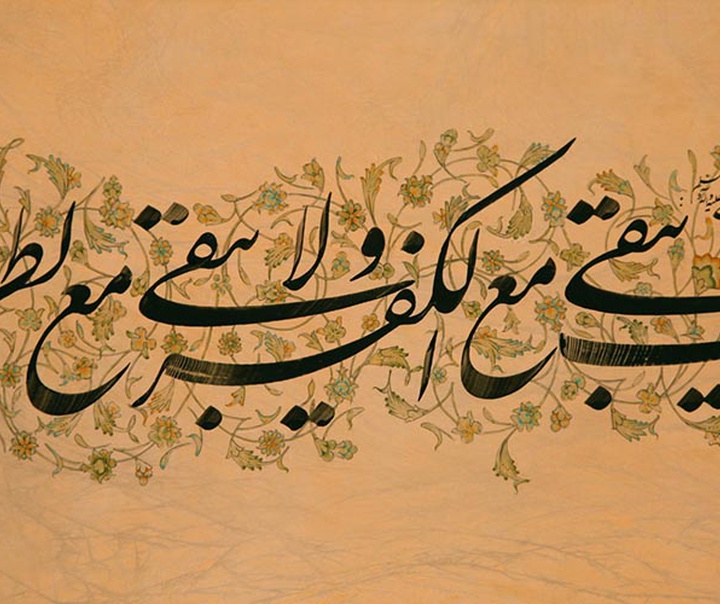 یبقی مع الکفر ولا یبقی مع